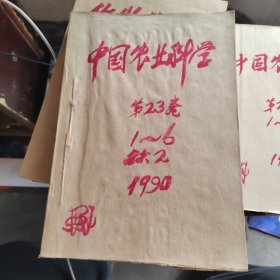 中国农业科学
第23卷
1～6
缺2
1990
中国农
19